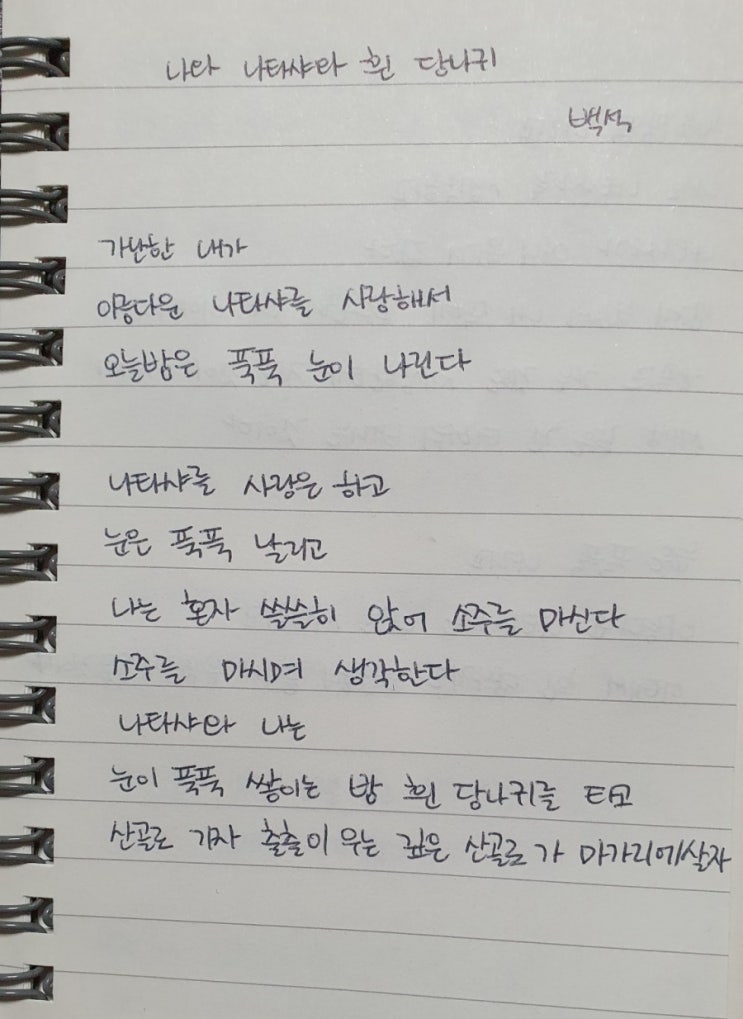 나와 나타샤와 흰 당나귀
백석
가난한 내가
아름다운 나타샤를 사랑해서
오늘밤은 푹푹 눈이 나린다
나타샤를 사랑은 하고
눈은 푹푹 날리고
나는 혼자 쓸쓸히 앉어 소주를 마신다
소주를 마시며 생각한다
나타샤와 나는
눈이 푹푹 쌓이는 밤 흰 당나귀를 타고
산골로 가자 출출이 우는 깊은 산골로 가 마가리에살자